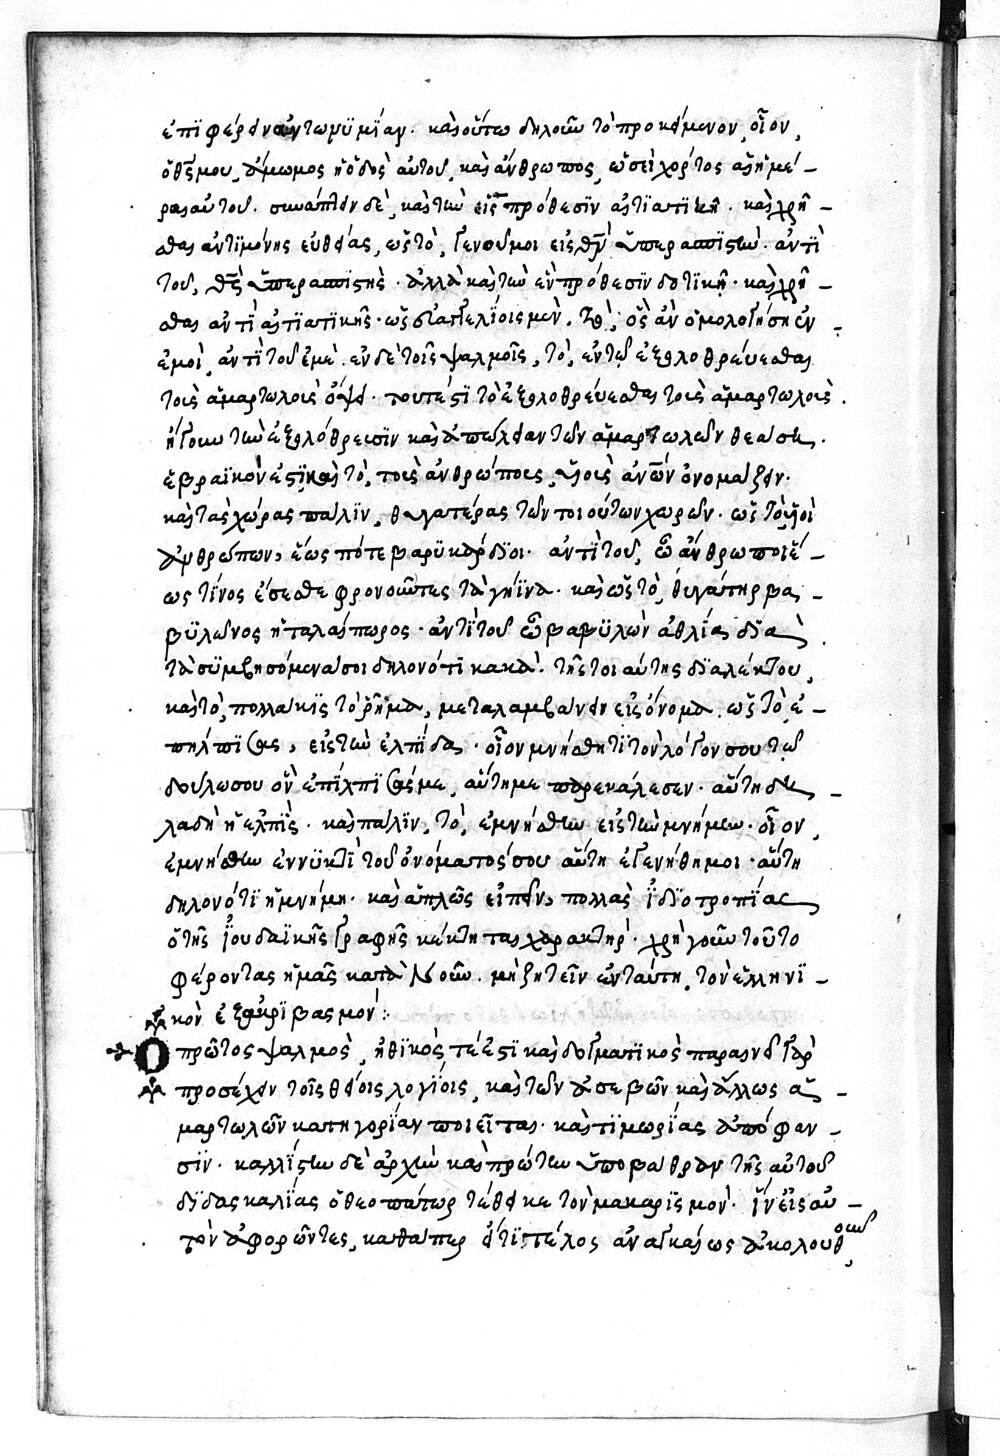 ἐπιφέρειν ἀντωνυμίαν· καὶ οὕτω δηλοῦν τὸ προκείμενον, οἷον,
ὁ θς μου, ἄμωμος ἡ ὁδὸς αὐτοῦ, καὶ ἄνθρωπος, ὡσεὶ χόρτος αἱ ἡμέ-
ραι αὐτοῦ. συνάπτειν δὲ, καὶ τὴν εἰς πρόθεσιν αἰτιατικῇ. καὶ χρῆ-
σθαι ἀντὶ μόνης εὐθείας, ὡς τὸ, γενοῦ μοι εἰς θν ὑπερασπιστὴν. ἀντὶ
τοῦ, θς ὑπερασπιστής. ἀλλὰ καὶ τὴν ἐν πρόθεσιν δοτικῇ. καὶ χρῆ-
σθαι ἀντὶ αἰτιατικῆς. ὡς εὐαγγελίοις μὲν, τὸ, ὃς ἂν ὁμολογήσῃ ἐν
ἐμοὶ, ἀντὶ τοῦ ἐμέ. ἐν δὲ τοῖς ψαλμοῖς, τὸ, ἐν τῷ ἐξολοθρεύεσθαι
τοὺς ἁμαρτωλοὺς ὄψει. τουτέστι τὸ ἐξολοθρεύεσθαι τοὺς ἁμαρτωλοὺς.
ἤγουν τὴν ἐξολόθρευσιν καὶ ἀπώλειαν τῶν ἁμαρτωλῶν θεάσῃ.
ἑβραϊκόν ἐστι καὶ τὸ, τοὺς ἀνθρώπους, υἱοὺς ἀνων ὀνομάζειν.
καὶ τὰς χώρας πάλιν, θυγατέρας τῶν τοιούτων χωρῶν. ὡς τὸ υἱοὶ
ἀνθρώπων, ἕως πότε βαρυκάρδιοι. ἀντὶ τοῦ, ὦ ἄνθρωποι ἕ-
ως τίνος ἔσεσθε φρονοῦντες τὰ γήϊνα. καὶ ὡς τὸ, θυγάτηρ βα-
βυλῶνος ἡ ταλαίπωρος. ἀντὶ τοῦ ὦ βαβυλὼν ἀθλία διὰ
τὰ συμβησόμενά σοι δηλονότι κακά. τῆς τοιαύτης διαλέκτου,
καὶ τὸ, πολλάκις τὸ ῥῆμα, μεταλαμβάνειν εἰς ὄνομα. ὡς τὸ ἐ-
πήλπισας, εἰς τὴν ἐλπίδα. οἷον μνήσθητι τὸν λόγον σου τῷ
δούλῳ σου ὃν ἐπήλπισάς με, αὕτη με παρεκάλεσεν. αὕτη δη-
λαδὴ ἡ ἐλπίς. καὶ πάλιν, τὸ, ἐμνήσθην εἰς τὴν μνήμην. οἷον,
ἐμνήσθην ἐν νυκτὶ τοῦ ὀνόματός σου αὕτη ἐγενήθη μοι. αὕτη
δηλονότι ἡ μνήμη. καὶ ἁπλῶς εἰπεῖν, πολλὰς ἰδιοτροπίας
ὁ τῆς ἰουδαϊκῆς γραφῆς κέκτηται χαρακτήρ. χρὴ γοῦν τοῦτο
φέροντας ἡμᾶς κατὰ νοῦν. μὴ ζητεῖν ἐνταύτῃ, τὸν ἑλληνι-
κὸν ἐξακριβασμόν:
Ὁ πρῶτος ψαλμὸς, ἠθικός τέ ἐστι καὶ δογματικὸς παραινεῖ γὰρ
προσέχειν τοῖς θείοις λογίοις, καὶ τῶν ἀσεβῶν καὶ ἄλλως ἁ-
μαρτωλῶν κατηγορίαν ποιεῖται. καὶ τιμωρίας ἀπόφαν-
σιν. καλλίστην δὲ ἀρχὴν καὶ πρώτην ὑποβάθραν τῆς αὐτοῦ
διδασκαλίας ὁ θεοπάτωρ τέθεικε τὸν μακαρισμόν. ἵν' εἰς αὐ-
τὸν ἀφορῶντες, καθάπερ εἴ τι τέλος ἀναγκαίως ἀκολουθ